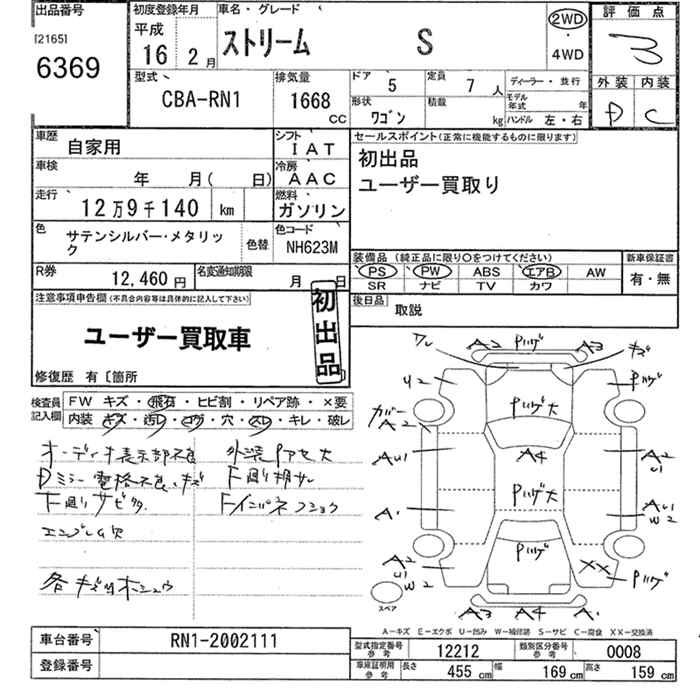 出品番号
[2165]
6369
初度登録年月
平成
16 2月
車名・グレード
ストリーム S
2WD
・
4WD
評価点
3
外装 内装
D C
型式
CBA-RN1
排気量
1668
cc
ドア 5
定員 7人
形状 ワゴン
積載 kg
ディーラー・並行
モデル年式 年
ハンドル 左・右
車歴
自家用
シフト
IAT
車検
年 月( 日)
冷房
AAC
走行
12万9千140 km
燃料
ガソリン
色
サテンシルバー・メタリック
色替
色コード
NH623M
R券
12,460円
名変通知期限
月 日
セールスポイント(正常に機能するものに限ります)
初出品
ユーザー買取り
装備品(純正品に限り○をつけてください)
PS PW ABS エアB AW
SR ナビ TV カワ
新車保証書
有・無
後日品
取説
注意事項申告欄(不具合内容等は具体的に記入して下さい)
ユーザー買取車
初出品
修復歴 有〔箇所
検査員記入欄
FW キズ・飛石・ヒビ割・リペア跡・×要
内装 キズ・汚レ・コゲ・穴・スレ・キレ・破レ
オーディオ表示部不良
Dミラー電格不良、キズ
下廻リサビ大
エンブレム欠
各キズ凹小ショウ
外装Pハゲ大
F廻リ
Fインパネフショク
ワレ A2 Pハゲ A3 キズ
U2 Pハゲ
カバー A2
Pハゲ大
AU1 A4 A2 U1
Pハゲ大
A1 AU1 W2
Pハゲ
A2 U1 W2
XX Pハゲ
スペア
A3 A4 A1
A―キズ E―エクボ U―凹み W―補修跡 S―サビ C―腐食 XX―交換済
車台番号
RN1-2002111
登録番号
型式指定番号
参考
12212
類別区分番号
参考
0008
車庫証明用
参考
長さ 455 cm 幅 169 cm 高さ 159 cm